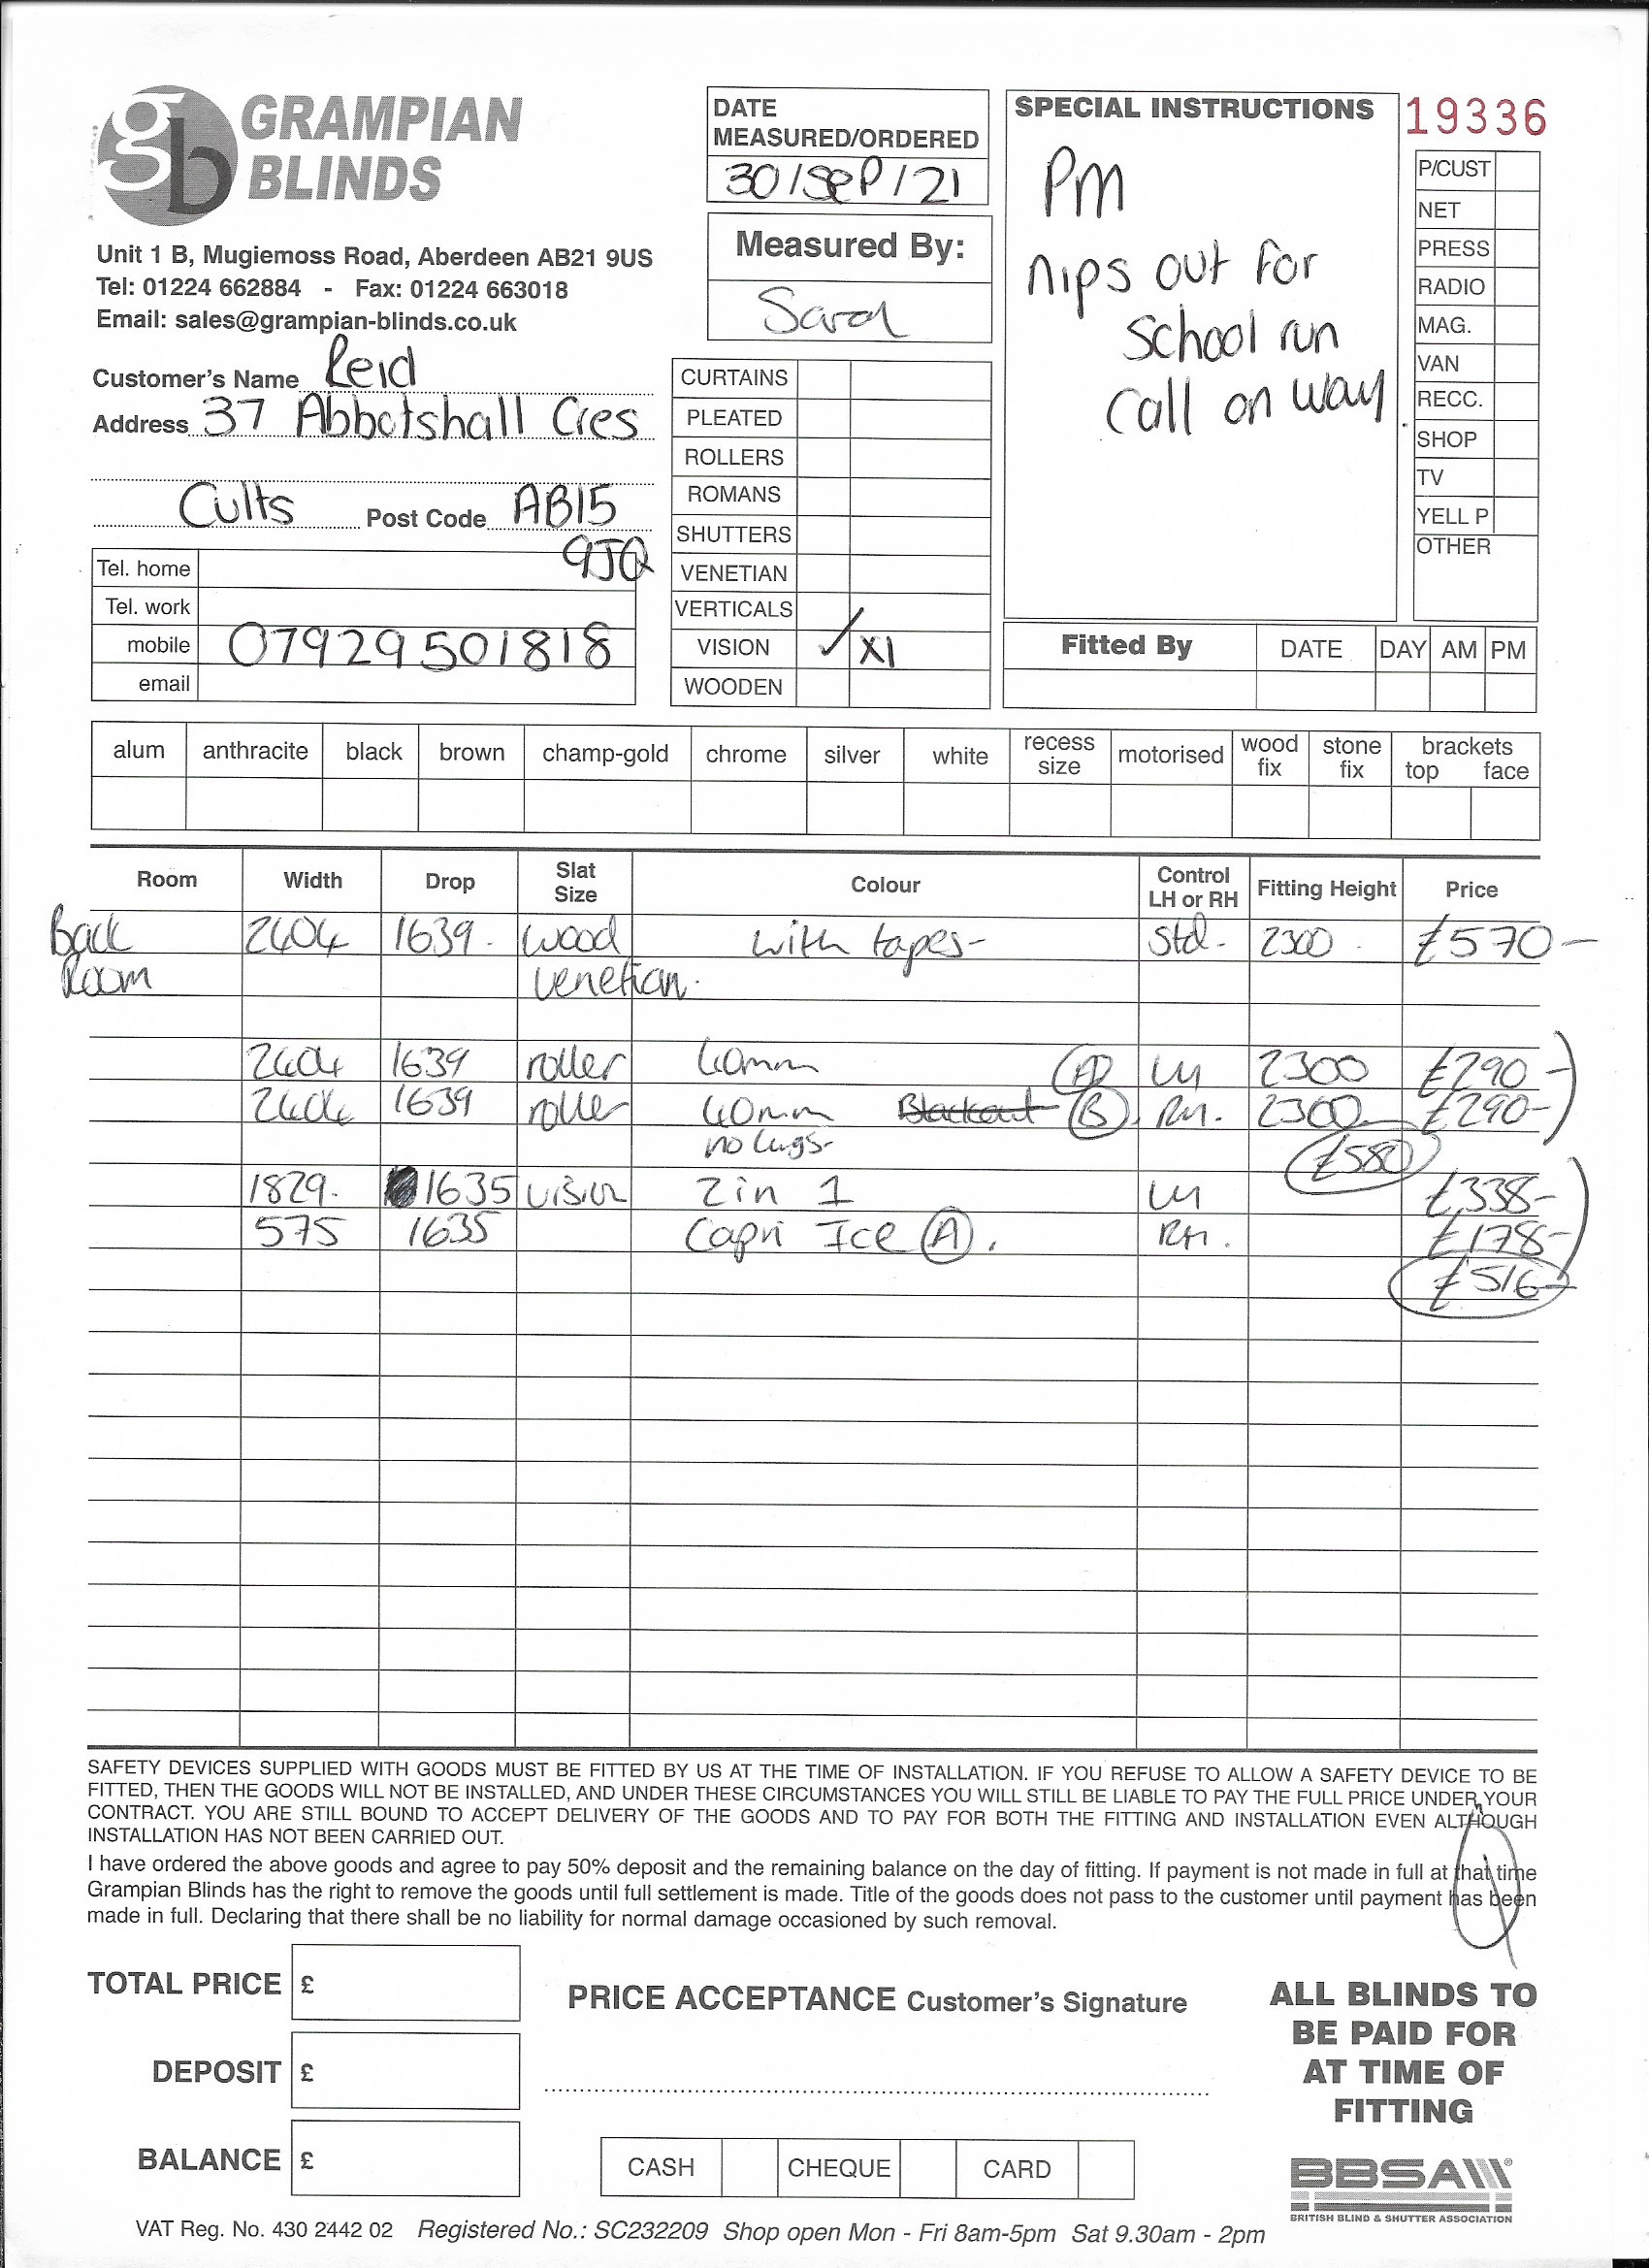 gb GRAMPIAN BLINDS
Unit 1 B, Mugiemoss Road, Aberdeen AB21 9US
Tel: 01224 662884 - Fax: 01224 663018
Email: sales@grampian-blinds.co.uk
Customer's Name Reid
Address 37 Abbotshall Cres
Cults Post Code AB15
9JQ
Tel. home
Tel. work
mobile 07929501818
email
DATE
MEASURED/ORDERED
30/SEP/21
Measured By:
CURTAINS
PLEATED
ROLLERS
ROMANS
SHUTTERS
VENETIAN
VERTICALS
VISION ✓ X1
WOODEN
SPECIAL INSTRUCTIONS
Pm
nips out for
School run
Call on way
19336
P/CUST
NET
PRESS
RADIO
MAG.
VAN
RECC.
SHOP
TV
YELL P
OTHER
Fitted By DATE DAY AM PM
alum anthracite black brown champ-gold chrome silver white recess size motorised wood fix stone fix brackets top face
Room Width Drop Slat Size Colour Control LH or RH Fitting Height Price
Back 2404 1639. wood with tapes- Std- 2300 . £570-
Room venetian.
2404 1639 roller 40mm (A) LH 2300 £290-
2404 1639 roller 40mm Blackout (B). RH. 2300 £290-
no lugs- £580
1829. 1635 vision 2 in 1 LH £338-
575 1635 Capri Ice (A). RH. £178-
£516-
SAFETY DEVICES SUPPLIED WITH GOODS MUST BE FITTED BY US AT THE TIME OF INSTALLATION. IF YOU REFUSE TO ALLOW A SAFETY DEVICE TO BE
FITTED, THEN THE GOODS WILL NOT BE INSTALLED, AND UNDER THESE CIRCUMSTANCES YOU WILL STILL BE LIABLE TO PAY THE FULL PRICE UNDER YOUR
CONTRACT. YOU ARE STILL BOUND TO ACCEPT DELIVERY OF THE GOODS AND TO PAY FOR BOTH THE FITTING AND INSTALLATION EVEN ALTHOUGH
INSTALLATION HAS NOT BEEN CARRIED OUT.
I have ordered the above goods and agree to pay 50% deposit and the remaining balance on the day of fitting. If payment is not made in full at that time
Grampian Blinds has the right to remove the goods until full settlement is made. Title of the goods does not pass to the customer until payment has been
made in full. Declaring that there shall be no liability for normal damage occasioned by such removal.
TOTAL PRICE £
DEPOSIT £
BALANCE £
PRICE ACCEPTANCE Customer's Signature
CASH CHEQUE CARD
ALL BLINDS TO
BE PAID FOR
AT TIME OF
FITTING
BBSA
BRITISH BLIND & SHUTTER ASSOCIATION
VAT Reg. No. 430 2442 02 Registered No.: SC232209 Shop open Mon - Fri 8am-5pm Sat 9.30am - 2pm